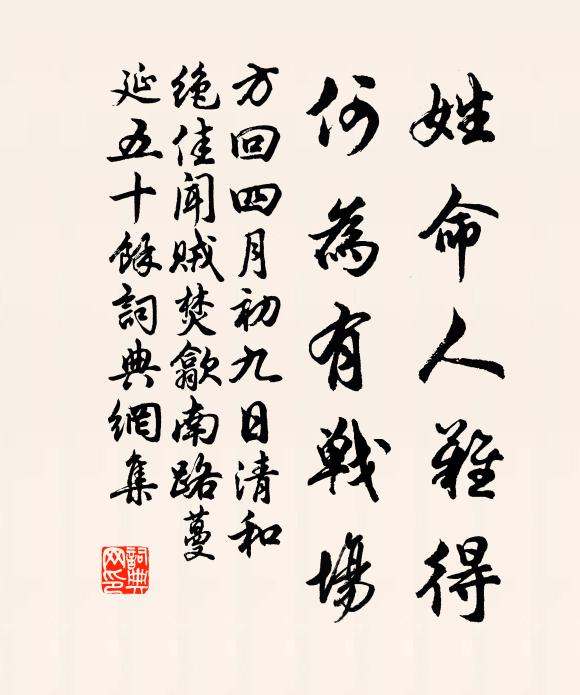 姓命人難得
何為有戰場
方回四月初九日清和
絶佳聞賊焚歙南路蔓
延五十餘詞典網集
詞典
网印